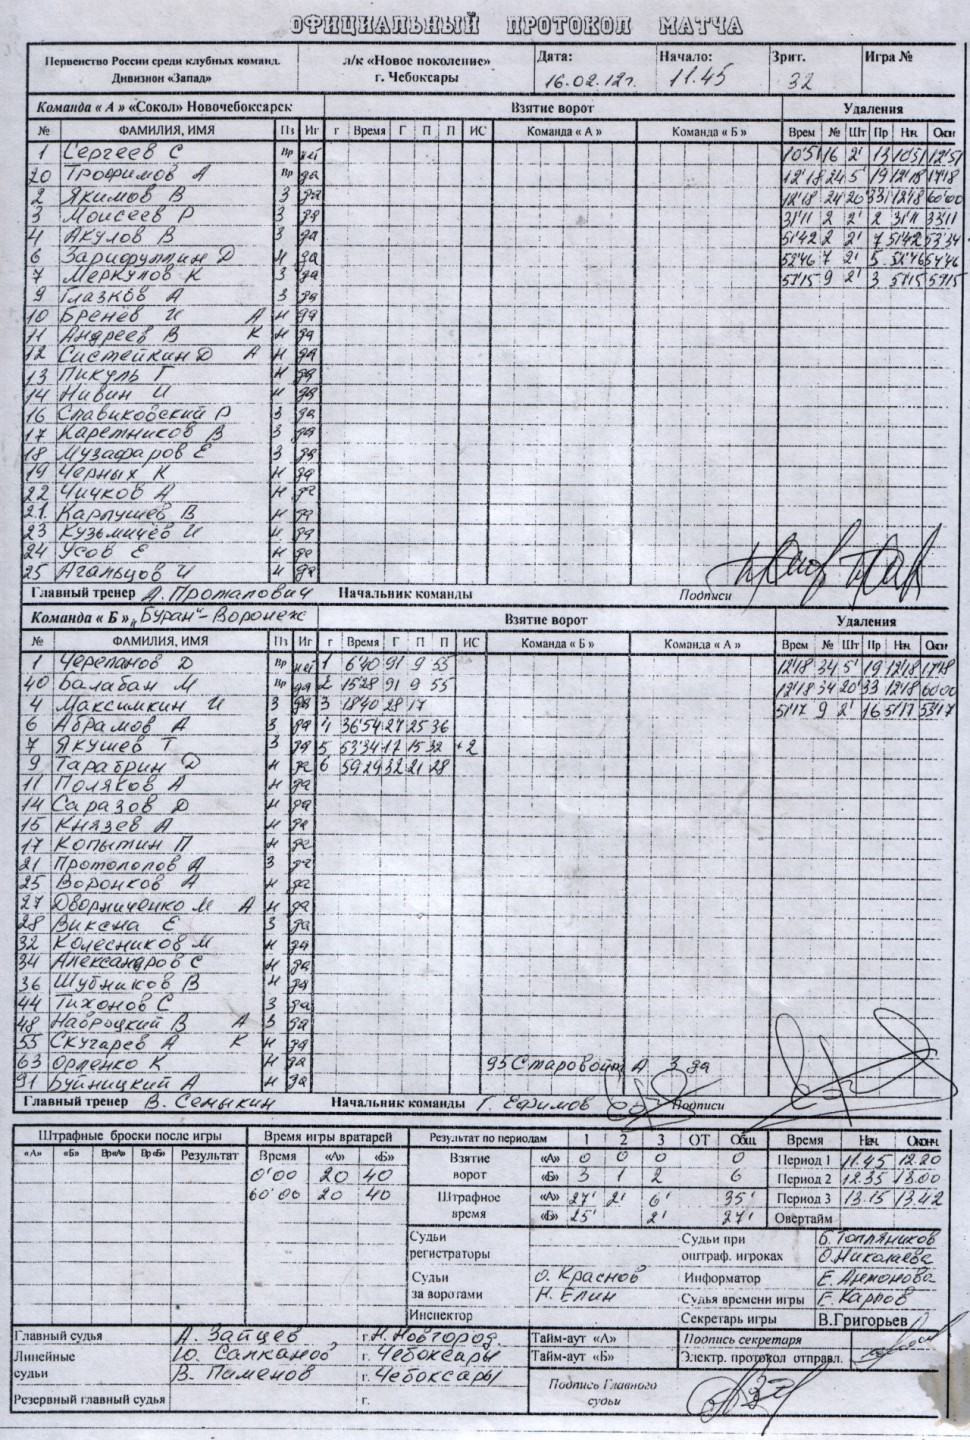 ОФИЦИАЛЬНЫЙ ПРОТОКОЛ МАТЧА
Первенство России среди клубных команд. Дивизион «Запад»
л/к «Новое поколение» г. Чебоксары
Дата: 16.02.12г.
Начало: 11.45
Зрит. 32
Игра №
Команда « А » «Сокол» Новочебоксарск Взятие ворот Удаления
№ ФАМИЛИЯ, ИМЯ Пз Иг г Время Г П П ИС Команда « А » Команда « Б » Врем № Шт Пр Нач. Окон
1 Сергеев С Вр нет 10'51 16 2' 13 10'51 12'51
20 Трофимов А Вр да 12'18 24 5' 19 12'18 17'18
2 Якимов В З да 12'18 24 20' 33 12'18 60'00
3 Моисеев Р З да 31'11 2 2' 2 31'11 33'11
4 Акулов В З да 51'42 2 2' 7 51'42 53'34
6 Зарифуллин Д Н да 52'46 7 2' 5 52'46 54'46
7 Меркулов К З да 57'15 9 2' 3 57'15 59'15
9 Глазков А З да
10 Бренёв И А Н да
11 Андреев В К Н да
12 Систейкин Д А Н да
13 Пикуль Г Н да
14 Нивин И Н да
16 Славиковский Р З да
17 Каретников В З да
18 Музафаров Е З да
19 Черных К Н да
22 Чичков А Н да
21 Карпушев В Н да
23 Кузьмичёв И Н да
24 Усов Е Н да
25 Агальцов И Н да
Главный тренер Начальник команды Подписи
Команда « Б » „Буран“-Воронеж Взятие ворот Удаления
№ ФАМИЛИЯ, ИМЯ Пз Иг г Время Г П П ИС Команда « Б » Команда « А » Врем № Шт Пр Нач. Окон
1 Черепанов Д Вр нет 1 6'40 91 9 55 12'18 34 5' 19 12'18 17'18
40 Балабан М Вр да 2 15'28 91 9 55 12'18 34 20' 33 12'18 60'00
4 Максимкин И З да 3 18'40 28 17 51'17 9 2' 16 51'17 53'17
6 Абрамов А З да 4 36'54 27 25 36
7 Якушев Т З да 5 53'34 17 15 32 +2
9 Тарабрин Д Н да 6 59'29 32 21 28
11 Поляков А Н да
14 Саразов Д Н да
15 Князев А Н да
17 Копытин П Н да
21 Протопопов А З да
25 Воронков А Н да
27 Дворниченко М А Н да
28 Виксна Е З да
32 Колесников М Н да
34 Александров С Н да
36 Шубников В Н да
44 Тихонов С З да
48 Навроцкий В А З да
55 Скугарев А К Н да
63 Орленко К Н да 95 Старовойт А З да
91 Буйницкий А Н да
Главный тренер В. Семыкин Начальник команды Г. Ефимов Подписи
Штрафные броски после игры Время игры вратарей Результат по периодам 1 2 3 ОТ Общ. Время Нач. Оконч.
«А» «Б» Вр«А» Вр«Б» Результат Время «А» «Б» Взятие ворот «А» 0 0 0 0 Период 1 11.45 12.20
0'00 20 40 «Б» 3 1 2 6 Период 2 12.35 13.00
60'00 20 40 Штрафное время «А» 27' 2' 6' 35' Период 3 13.15 13.42
«Б» 25' 2' 27' Овертайм
Судьи регистраторы Судьи при оштраф. игроках Б. Топляников
О. Николаева
Судьи за воротами О. Краснов Информатор Е. Антонова
Н. Елин Судья времени игры Е. Карпов
Инспектор Секретарь игры В.Григорьев
Главный судья А. Зайцев г. Н. Новгород Тайм-аут «А» Подпись секретаря
Линейные судьи Ю. Салканов г. Чебоксары Тайм-аут «Б» Электр. протокол отправл.
В. Пименов г. Чебоксары Подпись Главного судьи
Резервный главный судья г.